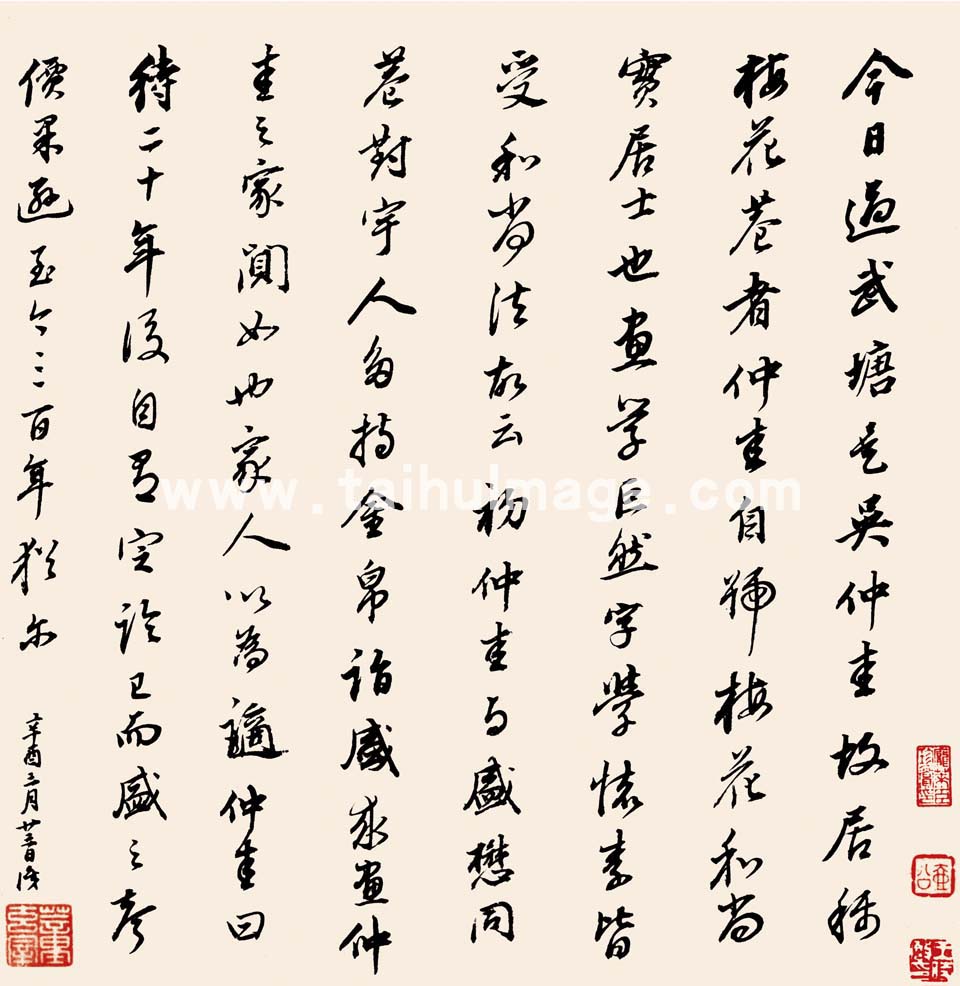 今日過武塘是吳仲圭故居稱
梅花菴者仲圭自號梅花和尚
寶居士也畫學巨然字學懷素皆
受和尚法故云初仲圭与盛懋同
菴對宇人多持金帛詣盛求畫仲
圭之家闃如也家人以為適仲圭曰
待二十年後自有定論已而盛之
價果遜至今三百年猶尔
辛酉三月廿
www.taihuimage.com